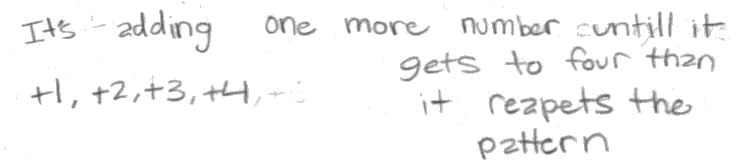 It's adding one more number untill it
gets to four than
+1, +2, +3, +4,
it reapets the
pattern